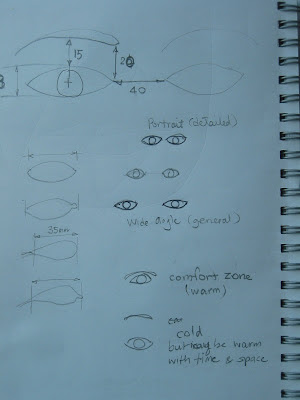 15
20
8
40
Portrait (detailed)
Wide angle (general)
35mm
comfort zone
(warm)
cold
but may be warm
with time & space